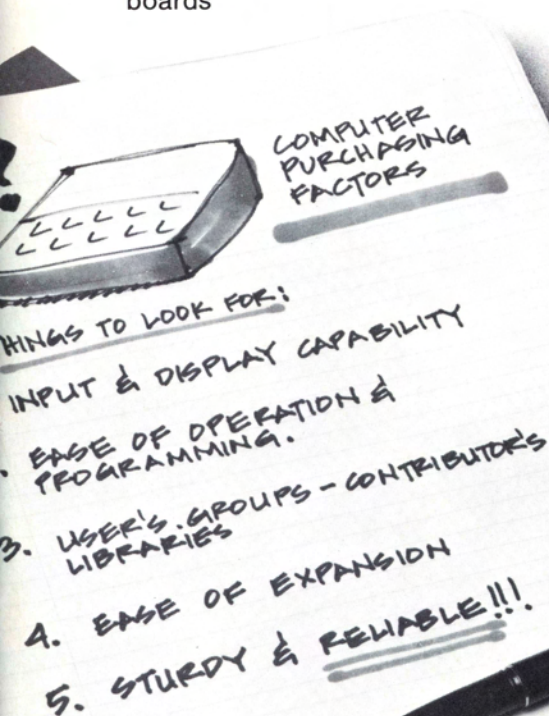 boards
?
COMPUTER
PURCHASING
FACTORS
HINGS TO LOOK FOR:
INPUT & DISPLAY CAPABILITY
. EASE OF OPERATION &
PROGRAMMING.
3. USER'S GROUPS - CONTRIBUTOR'S
LIBRARIES
4. EASE OF EXPANSION
5. STURDY & RELIABLE!!!